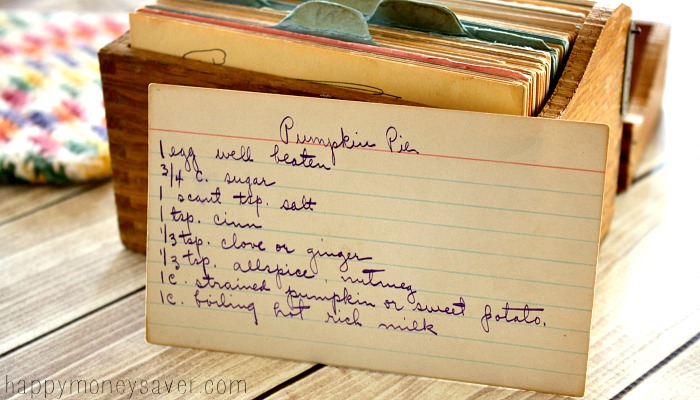 Pumpkin Pie
1 egg well beaten
3/4 c. sugar
1 scant tsp. salt
1 tsp. cinn
1/3 tsp. clove or ginger
1/3 tsp. allspice, nutmeg
1 c. strained pumpkin or sweet potato.
1 c. boiling hot rich milk
happymoneysaver.com